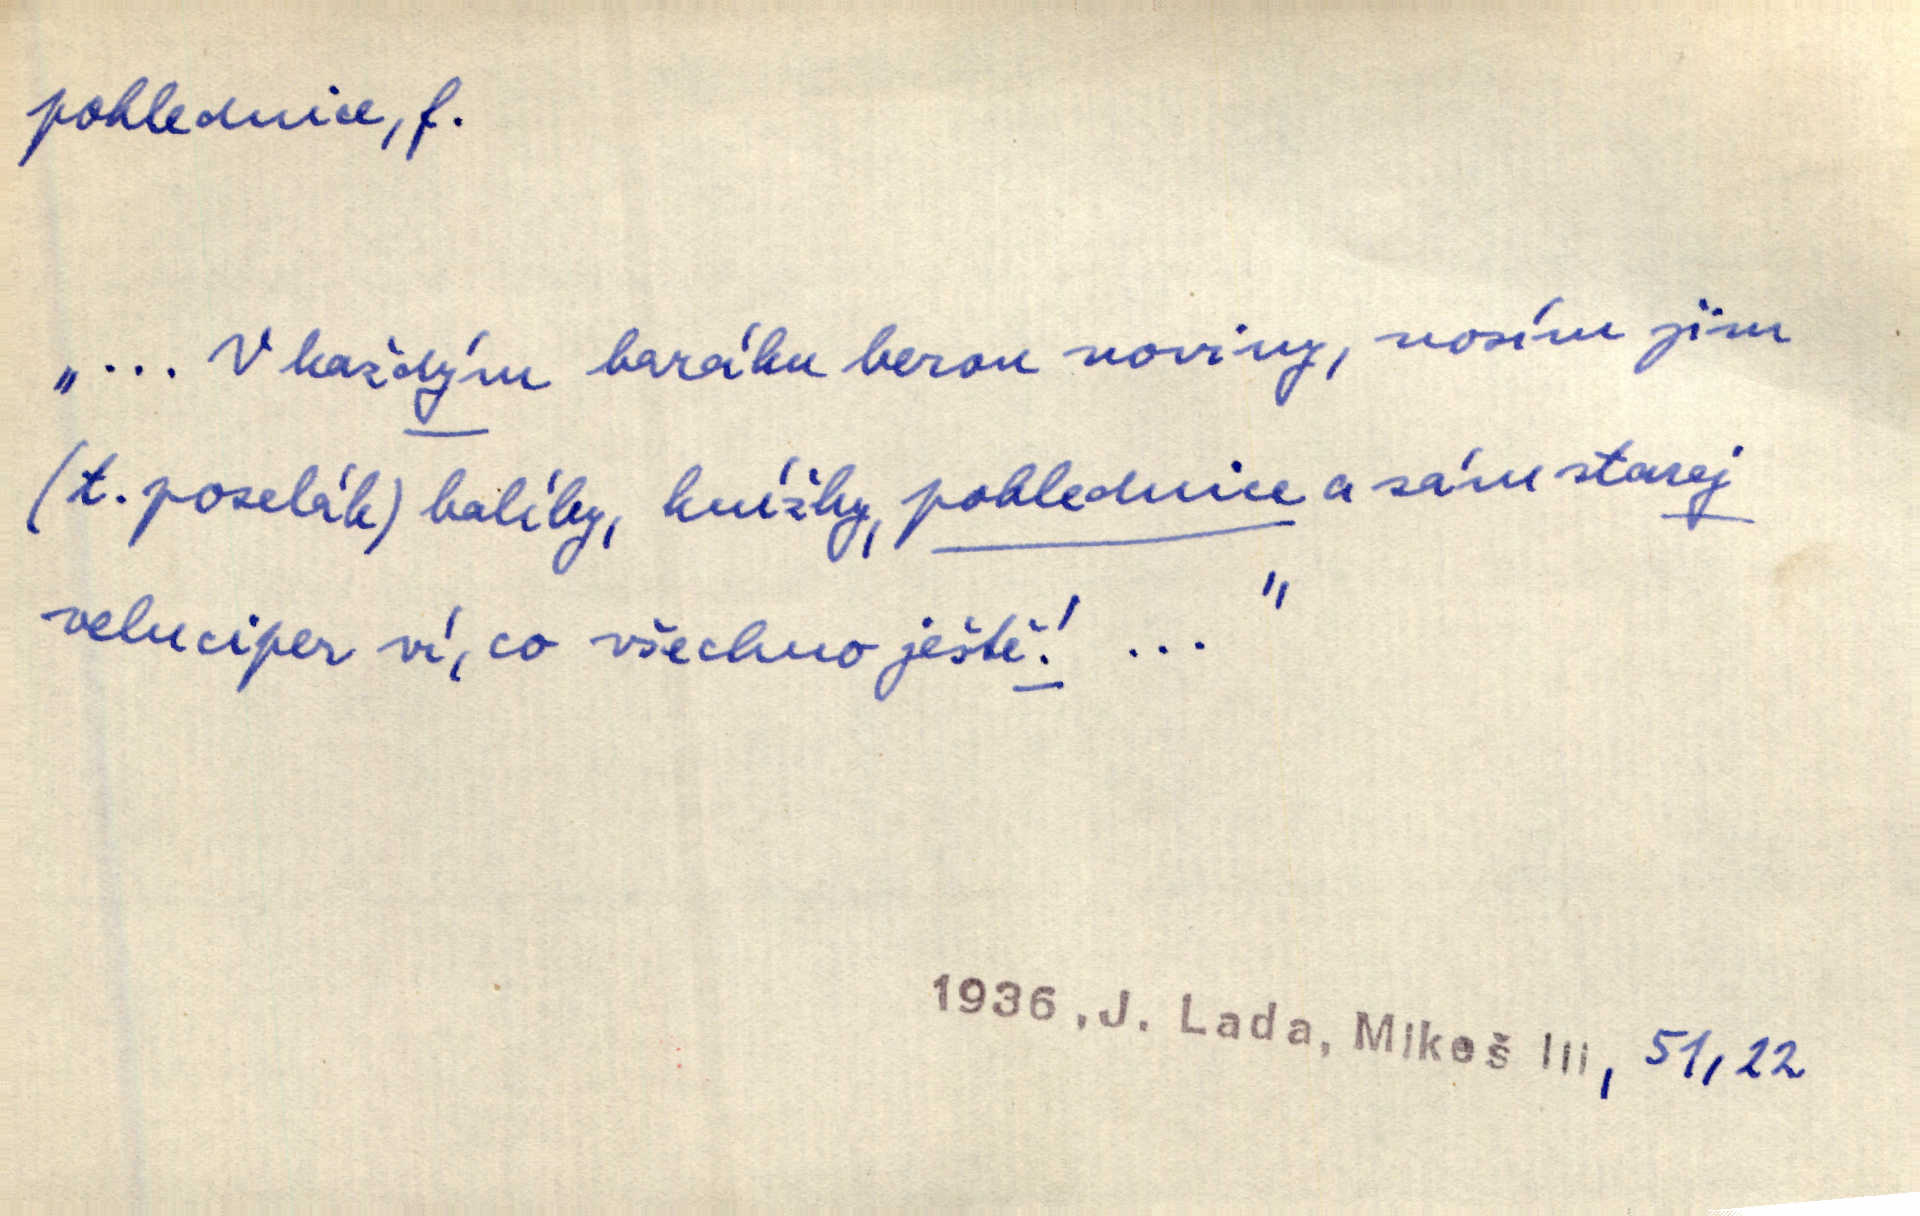 pohlednice, f.
„... V každým baráku berou noviny, nosím jim
(t. poselák) balíky, knížky, pohlednice a sám starej
veluciper ví, co všechno ještě! ..."
1936, J. Lada, Mikeš III, 51, 22